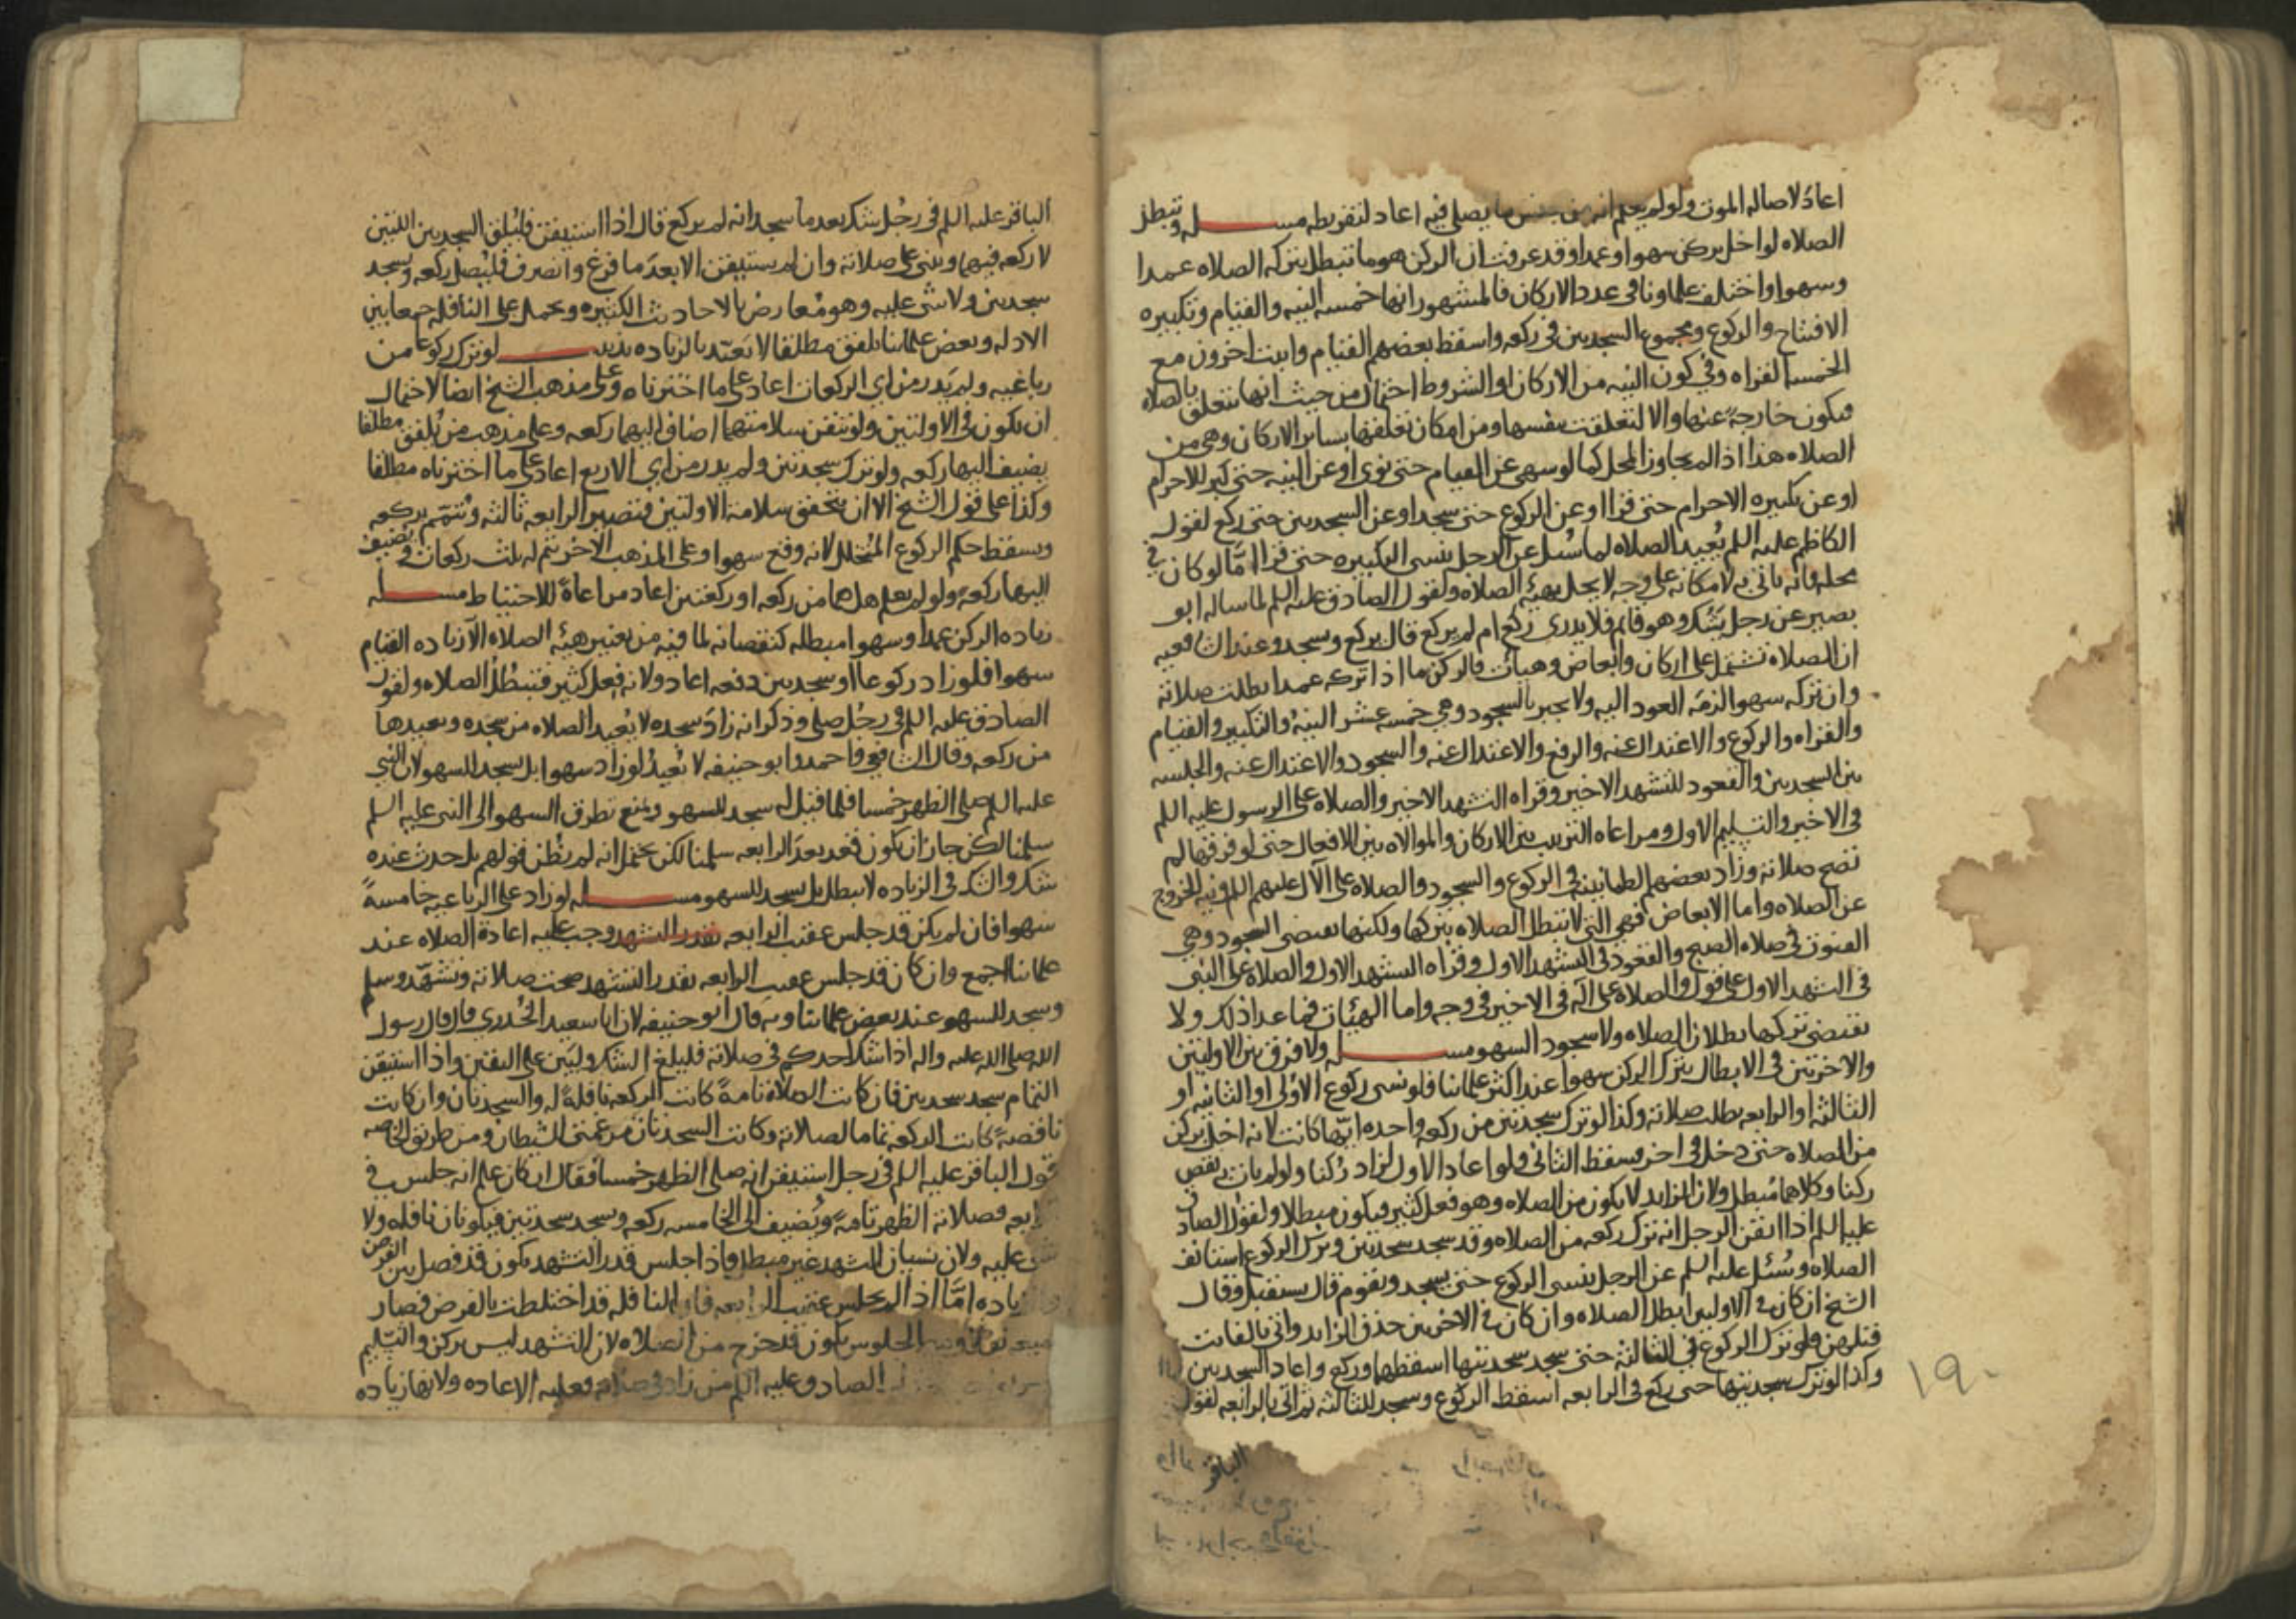 اعاد لاصاله الموت ولو لم يعلم انه من جنس ما يصلي فيه اعاد لتفريطه مسـله وتبطل
الصلاه لو اخل بركن سهوا وعمدا وقد عرفت ان الركن هو ما تبطل بتركه الصلاه عمدا
وسهوا واختلف علماونا في عدد الاركان فالمشهور انها خمسه النيه والقيام وتكبيره
الافتتاح والركوع ومجموع السجدتين في ركعه واسقط بعضهم القيام واثبت اخرون مع
الخمسه القراه وفي كون النيه من الاركان او الشروط احتمال من حيث انها تتعلق بالصلاه
فيكون خارجه عنها والا لتعلقت بنفسها ومن امكان تعلقها بساير الاركان وهي من
الصلاه هذا اذا لم يتجاوز المحل كما لو سهى عن القيام حتى نوى او عن النيه حتى كبر للاحرام
او عن تكبيره الاحرام حتى قرا او عن الركوع حتى سجد او عن السجدتين حتى ركع لقول
الكاظم عليه السلم يعيد الصلاه لما سئل عن الرجل ينسى التكبيره حتى قرا امّا لو كان في
محله فانه ياتي به لامكانه على وجه لا يخل بهيئه الصلاه ولقول الصادق عليه السلم لما ساله ابو
بصير عن رجل يشك وهو قايم فلا يدري ركع ام لم يركع قال يركع ويسجد وعند الشافعيه
ان الصلاه تشتمل على اركان وابعاض وهيات فالركن ما اذا تركه عمدا بطلت صلاته
وان تركه سهوا لزمه العود اليه ولا يجبر بالسجود وهي خمسه عشر النيه والتكبير والقيام
والقراه والركوع والاعتدال عنه والرفع والاعتدال عنه والسجود والاعتدال عنه والجلسه
بين السجدتين والقعود للتشهد الاخير وقراه التشهد الاخير والصلاه على الرسول عليه السلم
في الاخير والتسليم الاول ومراعاه الترتيب بين الاركان والموالاه بين الافعال حتى لو فرقها لم
تصح صلاته وزاد بعضهم الطمانينه في الركوع والسجود والصلاه على الآل عليهم السلم ونيه الخروج
عن الصلاه واما الابعاض فهي التي لا تبطل الصلاه بتركها ولكنها تقتضي السجود وهي
القنوت في صلاه الصبح والقعود في التشهد الاول وقراه التشهد الاول والصلاه على النبي
في التشهد الاول على قول والصلاه على آله في الاخير في وجه واما الهيئات فما عدا ذلك ولا
يقتضي تركها بطلان الصلاه ولا سجود السهو مسـله ولا فرق بين الاوليتين
والاخرتين في الابطال بترك الركن سهوا عند اكثر علمائنا فلو نسي ركوع الاولى او الثانيه او
الثالثه او الرابعه بطلت صلاته وكذا لو ترك سجدتين من ركعه واحده ايّها كانت لانه اخل بركن
من الصلاه حتى دخل في اخر فسقط الثاني ولو اعاد الاول لزاد ركنا ولو لم يات به نقص
ركنا وكلاهما مبطل ولان الزايد لا يكون من الصلاه وهو فعل كثير فيكون مبطلا ولقول الصادق
عليه السلم اذا ايقن الرجل انه ترك ركعه من الصلاه وقد سجد سجدتين وترك الركوع استانف
الصلاه وسئل عليه السلم عن الرجل ينسى الركوع حتى يسجد ويقوم قال يستقبل وقال
الشيخ ان كان في الاوليين ابطل الصلاه وان كان في الاخرتين حذف الزايد واتى بالفايت
فيلهن فلو ترك الركوع في الثالثه حتى سجد سجدتيها اسقطهما وركع واعاد السجدتين
وكذا لو ترك سجدتيها حتى ركع في الرابعه اسقط الركوع وسجد للثالثه ثم اتى بالرابعه لقول
١٩٠
الباقر
الباقر عليه السلم في رجل شك بعد ما سجد انه لم يركع قال اذا استيقن فليلق السجدتين اللتين
لا ركعه فيهما ويبني على صلاته وان لم يستيقن الا بعد ما فرغ وانصرف فليصل ركعه ويسجد
سجدتين ولا شي عليه وهو معارض بالاحاديث الكثيره ويحمل على النافله جمعا بين
الادله وبعض علمائنا يلفق مطلقا لا يعتد بالزياده تذنيب لو ترك ركوعا من
رباعيه ولم يدر من اي الركعات اعاد على ما اخترناه وعلى مذهب الشيخ ايضا لاحتمال
ان يكون في الاولتين ولو تيقن سلامتهما اضاف اليهما ركعه وعلى مذهب من يلفق مطلقا
يضيف اليها ركعه ولو ترك سجدتين ولم يدر من اي الاربع اعاد على ما اخترناه مطلقا
وكذا على قول الشيخ الا ان يتحقق سلامه الاولتين فتصير الرابعه ثالثه ويتمم بركعه
ويسقط حكم الركوع المتخلل لانه وقع سهوا وعلى المذهب الاخر يتم له ثلث ركعات ويضيف
اليها ركعه ولو لم يعلم هل هما من ركعه او ركعتين اعاد مراعاةً للاحتياط مسـله
زياده الركن عمدا وسهوا مبطله كنقصانه لما فيه من تغيير هيئه الصلاه الا زياده القيام
سهوا فلو زاد ركوعا او سجدتين دفعه اعاد ولانه فعل كثير فتبطل الصلاه ولقول
الصادق عليه السلم في رجل صلى وذكر انه زاد سجده لا يعيد الصلاه من سجده ويعيدها
من ركعه وقال الشافعي واحمد وابو حنيفه لا يعيد لو زاد سهوا بل يسجد للسهو لان النبي
عليه السلم صلى الظهر خمسا فلما قيل له سجد للسهو ونمنع تطرق السهو الى النبي عليه السلم
سلمنا لكن جاز ان يكون قعد بعد الرابعه سلمنا لكن يحتمل انه لم يظن قولهم بل حدث عنده
شك والشك في الزياده لا يبطل بل يسجد للسهو مسـله لو زاد على الرباعيه خامسةً
سهوا فان لم يكن قد جلس عقيب الرابعه بقدر التشهد وجب عليه اعادة الصلاه عند
علمائنا اجمع وان كان قد جلس عقيب الرابعه بقدر التشهد صحت صلاته وتشهّد وسلم
وسجد للسهو عند بعض علمائنا وبه قال ابو حنيفه لان ابا سعيد الخُدري قال قال رسول
الله صلى الله عليه واله اذا شك احدكم في صلاته فليلغ الشك وليَبن على اليقين واذا استيقن
التمام سجد سجدتين فان كانت الصلاه تامةً كانت الركعه نافلةً له والسجدتان وان كانت
ناقصةً كانت الركعه تماما لصلاته وكانت السجدتان مرغمتي الشيطان ومن طريق الخاصه
قول الباقر عليه السلم في رجل استيقن انه صلى الظهر خمسا فقال ان كان علم انه جلس في
الرابعه فصلاته الظهر تامةً ويُضيف الى الخامسه ركعه ويسجد سجدتين فيكونان نافله ولا
شي عليه ولان نسيان التشهد غير مبطل فاذا جلس قدر التشهد يكون قد فصل بين الفرض
والزياده امّا اذا لم يجلس عقيب الرابعه فان النافله قد اختلطت بالفرض فصار
الجلوس يكون قد خرج من الصلاه لان التشهد ليس بركن والتسليم
الصادق عليه السلم من زاد في صلاته فعليه الاعاده ولانها زياده